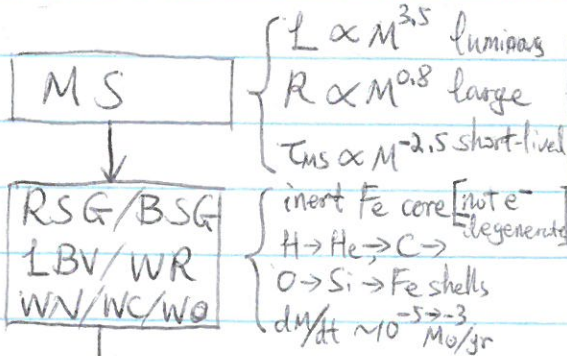 MS
L ∝ M^3.5 luminous
R ∝ M^0.8 large
τ_MS ∝ M^-2.5 short-lived
RSG/BSG
LBV/WR
WN/WC/WO
inert Fe core [not e^- degenerate]
H→He→C→
O→Si→Fe shells
dM/dt ~10^-5→-3 M_⊙/yr